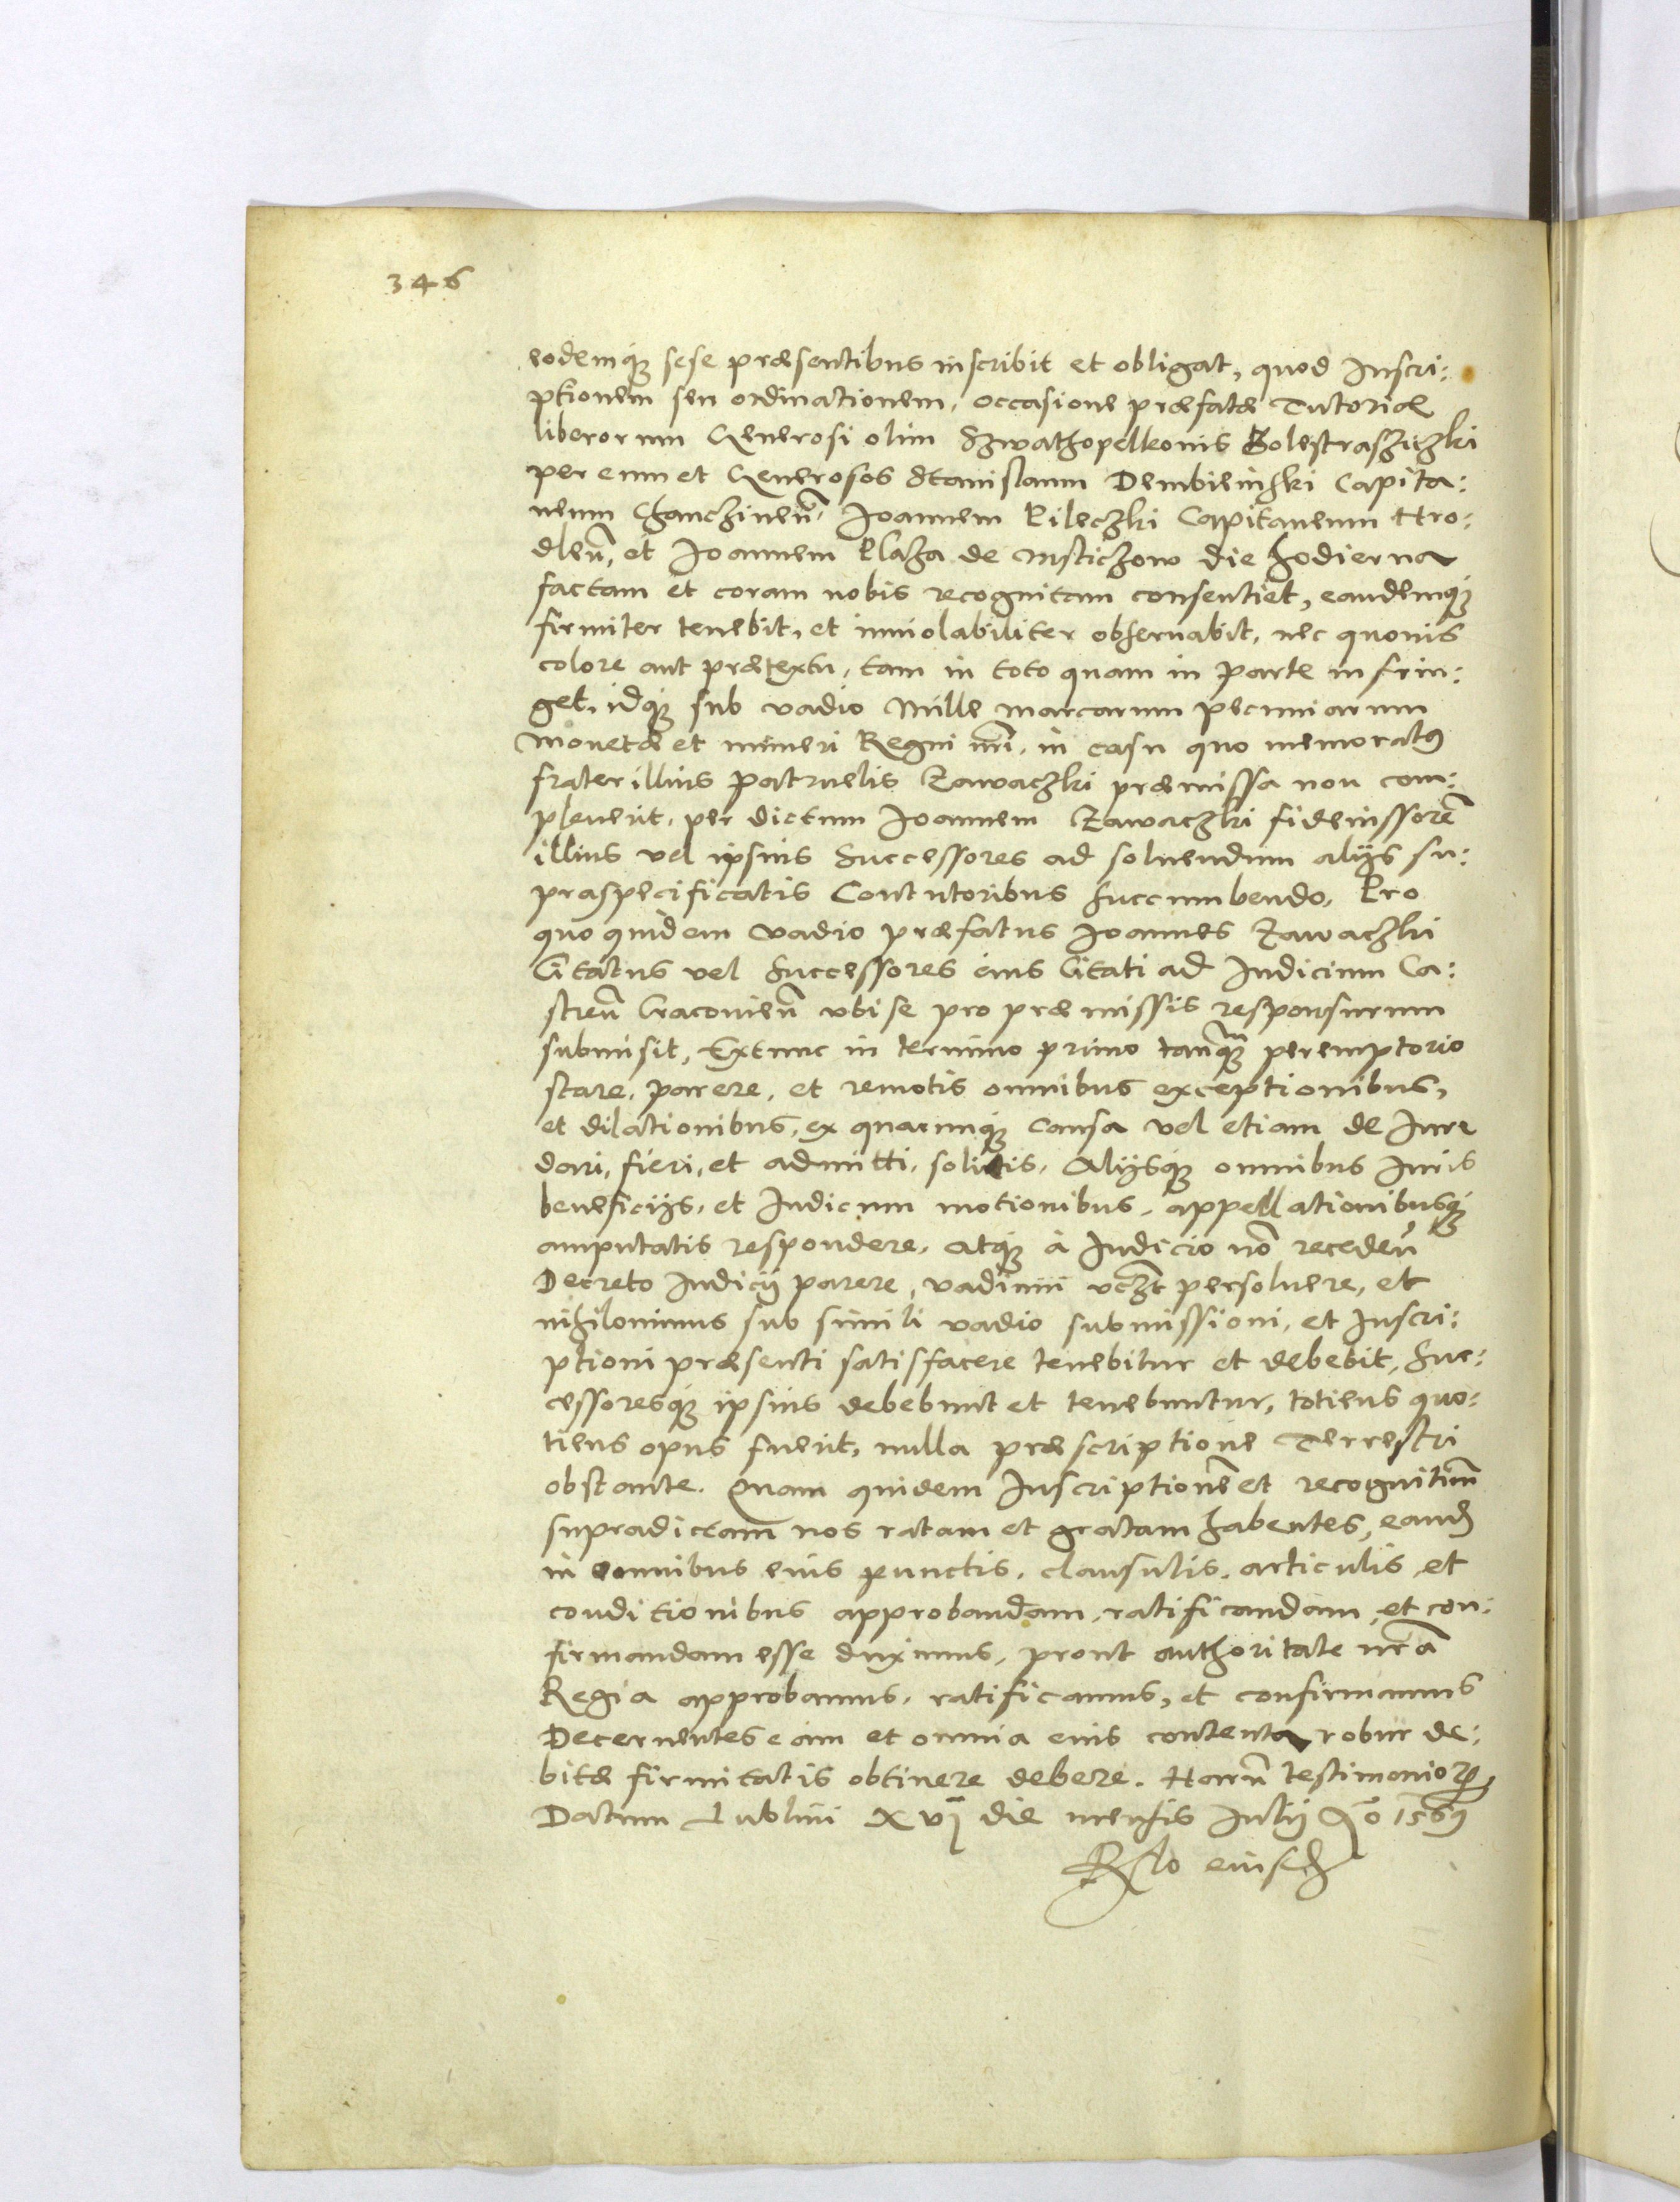 346
eodemq3 sese præsentibus inscribit et obligat, quod Inscri:
ptionem seu ordinationem, occasione præfatæ Tutoriæ
liberorum Generosi olim Szwathopelkonis Bolestraszitzki
per eum et Generosos Stanislaum Dembieinski Capita:
neum Chanczinen̄, Ioannem Pileczki Capitaneum Hro:
dlen̄, et Ioannem Plaza de Msticzow die hodierna
factam et coram nobis recognitam consentiet, eandemq3
firmiter tenebit, et inuiolabiliter obseruabit, nec quouis
colore aut prætextu, tam in toto quam in parte infrin:
get, idq3 sub vadio Mille marcarum pecuniarum
Monetæ et numeri Regni nr̄i, in casu quo memoratus
frater illius patruelis Zawaczki præmissa non com:
pleuerit, per dictum Ioannem Zawaczki fideiussorē
illius vel ipsius Successores ad soluendum alijs su:
praspecificatis Contutoribus succumbendo, Pro
quo quidem vadio præfatus Ioannes Zawaczki
Citatus vel Successores eius Citati ad Iudicium Ca:
stren̄ Cracouien̄ vbi se pro præmissis responsurum
submisit, Extunc in termino primo tanq̄3 peremptorio
stare, parere, et remotis omnibus exceptionibus,
et dilationibus, ex quacunq3 causa vel etiam de Iure
dari, fieri, et admitti, solitis, Alijsq3 omnibus Iuris
beneficijs, et Iudicum motionibus, appellationibusq3
amputatis respondere, atq3 à Iudicio nō receden̄
Decreto Iudicij parere, vadium vc3t persoluere, et
nihilominus sub simili vadio submissioni, et Inscri:
ptioni præsenti satisfacere tenebitur et debebit, Suc:
cessoresq3 ipsius debebunt et tenebuntur, totiens quo:
tiens opus fuerit, nulla præscriptione Terrestri
obstante. Quam quidem Inscriptionē et recognitionē
supradictam nos ratam et gratam habentes, eand
in omnibus eius punctis, clausulis, articulis, et
conditionibus approbandam, ratificandam, et con:
firmandam esse duximus, prout authoritate nr̄a
Regia approbamus, ratificamus, et confirmamus
Decernentes eam et omnia eius contenta robur de:
bitæ firmitatis obtinere debere. Harū testimonio ꝝ
Datum Lublini XVI die mensis Iulij Aº 1569
Rlo eiusd